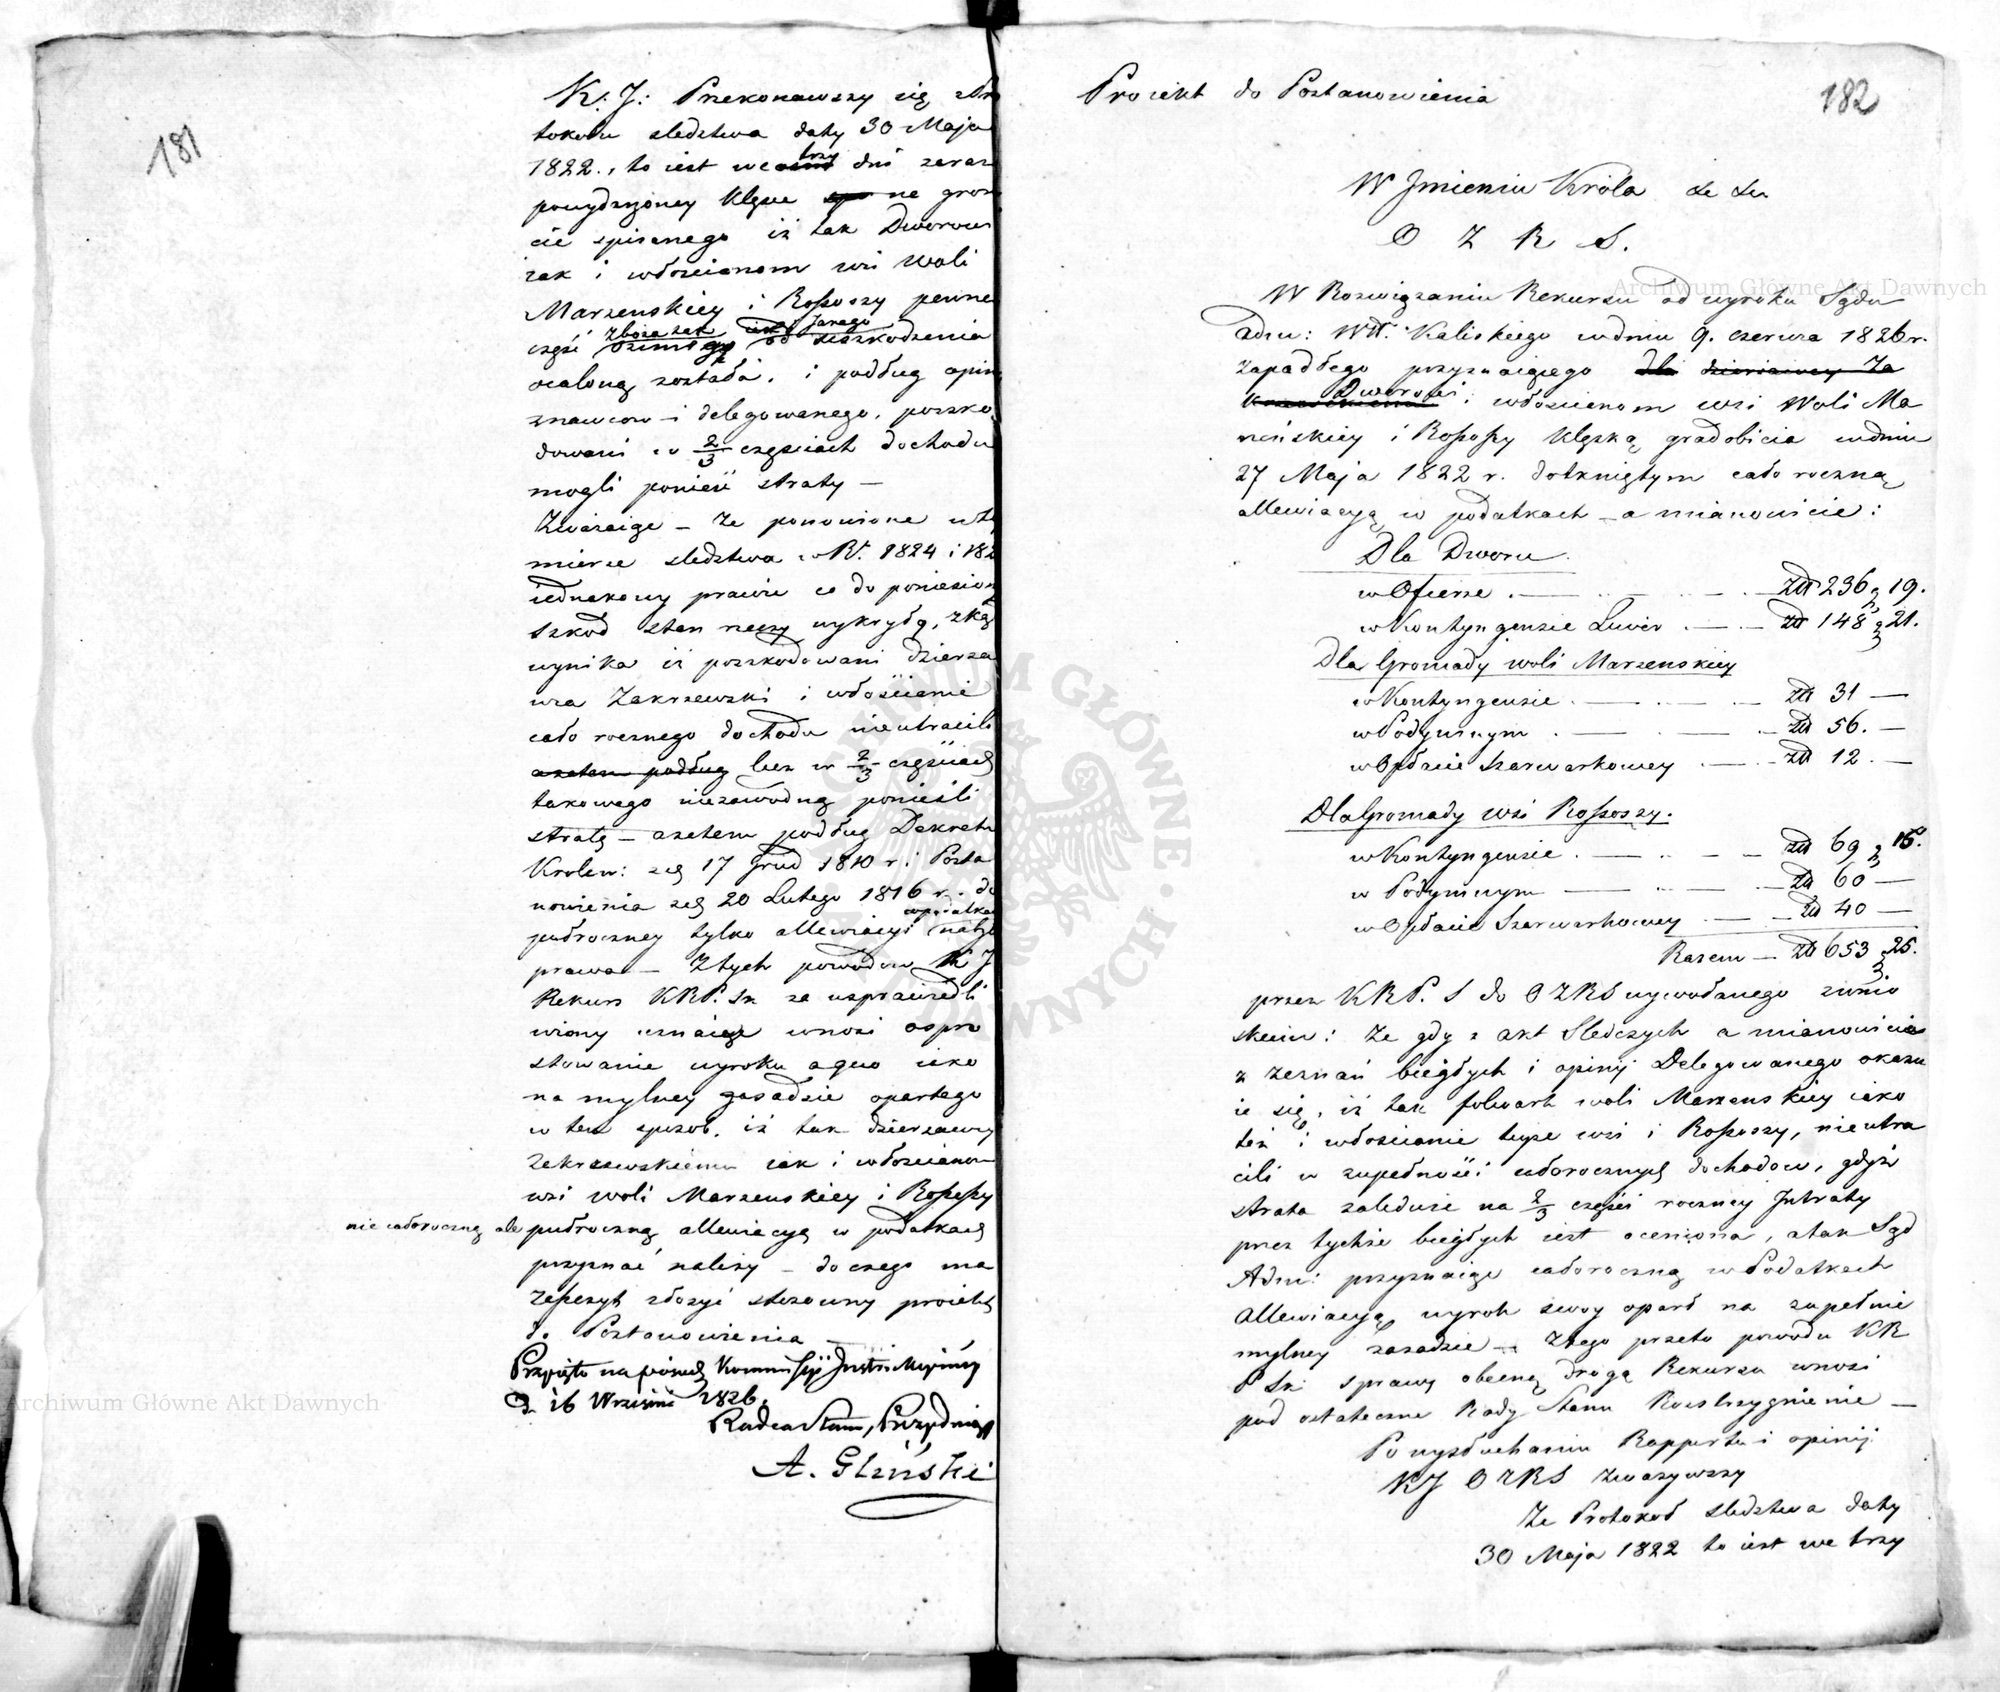 181
K: J: Przekonawszy się z Pro
tokołu sledztwa daty 30 Maja
1822., to iest we trzy dni zaraz
po wydarzoney klęsce na grun
cie spisanego iż tak Dworowi
iak i włoscianom wsi Woli
Marzenskiey i Rossoszy pewna
część zboża tak iak Jarego
ozimego od uszkodzenia
ocaloną została, i podług opinii
znawcow i delegowanego, poszko
dowani w 2/3 częsciach dochodu
mogli ponieść straty —
Zważaiąc – Że ponowione w t
mierze sledztwa w R. 1824 i 182
iednakowy prawie co do poniesion
szkod stan rzeczy wykryły, zkąd
wynika iż poszkodowani dzierża
wca Zakrzewski i włościanie
cało rocznego dochodu nieutracili
azatem podług lecz w 2/3 częściach
takowego niezawodną ponieśli
stratę – azatem podług Dekretu
Krolew: zeg 17 Grud 1810 r: i Posta
nowienia zeg 20 Lutego 1816 r. do
w podatkach
pułroczney tylko allewiacyi
prawa – Z tych powodow K J
Rekurs KRP. Sk za usprawiedli
wiony uznaiąc wnosi ospro
stowanie wyroku a quo iako
na mylney zasadzie opartego
w ten sposob, iż tak dzierżawcy
Zakrzewskiemu iak i włoscianom
wsi Woli Marzenskiey i Rossoszy
nie całoroczną ale pułroczną allewiacyą w podatkach
przyznać należy – do czego ma
zaszczyt złożyć stosowny proiekt
do Postanowienia
Przyięto na posiedz Kommissyi Instrukcyiney
d. 16 Wrzesnia 1826.
Radca Stanu, Prezyduiący
A. Gliński
Proiekt do Postanowienia
182
W Imieniu Króla &c &c
O Z R S.
W Rozwiązaniu Rekursu od wyroku Sądu
adm: Wtt. Kaliskiego w dniu 9. czerwca 1826 r.
zapadłego przyznaiącego dla dzierżawcy Za
krzewskiego Dworowi i włoscianom wsi Woli Ma
rzeńskiey i Rossoszy klęską gradobicia w dniu
27 Maja 1822 r. dotkniętym cało roczną
allewiacyą w podatkach – a mianowicie:
Dla Dworu
w Ofierze . — zł 236 g 19.
w Kontyngensie Liwer — zł 148 g 21.
Dla Gromady Woli Marzenskiey
w Kontyngensie — zł 31 —
w Podymnym — zł 56. —
w Opłacie Szarwarkowey — zł 12 —
Dla Gromady wsi Rossoszy.
w Kontyngensie . — zł 69 g 15.
w Podymnym — zł 60 —
w Opłacie Szarwarkowey — zł 40 —
Razem — zł 653 g 25.
przez KRP. S do O ZRS wywołanego z wnio
skiem: Że gdy z akt Sledczych a mianowicie
z zeznań biegłych i opinij Delegowanego okazu
ie się, iż tak folwark Woli Marzenskiey iako
też i włoscianie teyże wsi i Rossoszy, nie utra
cili w zupełności całorocznych dochodow, gdyż
strata zaledwie na 2/3 części roczney Intraty
przez tychże biegłych iest oceniona, a tak Sąd
Adm: przyznaiąc całoroczną w Podatkach
allewiacyą wyrok swoy oparł na zupełnie
mylney zasadzie – Z tego przeto powodu KR
P Sk: sprawę obecną drogą Rekursu wnosi
pod ostateczne Rady Stanu Rozstrzygnienie —
Po wysłuchaniu Rapportu i opinij
KJ O ZRS zważywszy
Że Protokoł sledztwa daty
30 Maja 1822 to iest we trzy
Archiwum Główne Akt Dawnych
Archiwum Główne Akt Dawnych
ARCHIWUM GŁÓWNE AKT DAWNYCH